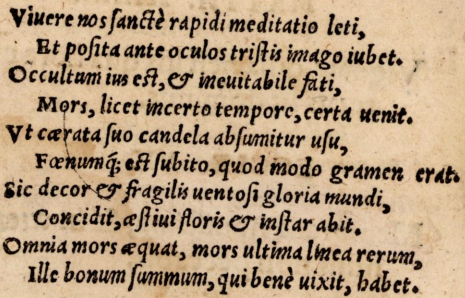 Viuere nos ſanctè rapidi meditatio leti,
Et poſita ante oculos triſtis imago iubet.
Occultum ius eſt, & ineuitabile fati,
Mors, licet incerto tempore, certa uenit.
Vt cærata ſuo candela abſumitur uſu,
Fœnumq́; eſt ſubito, quod modo gramen erat.
Sic decor & fragilis uentoſi gloria mundi,
Concidit, æſtiui floris & inſtar abit.
Omnia mors æquat, mors ultima linea rerum,
Ille bonum ſummum, qui benè uixit, habet.